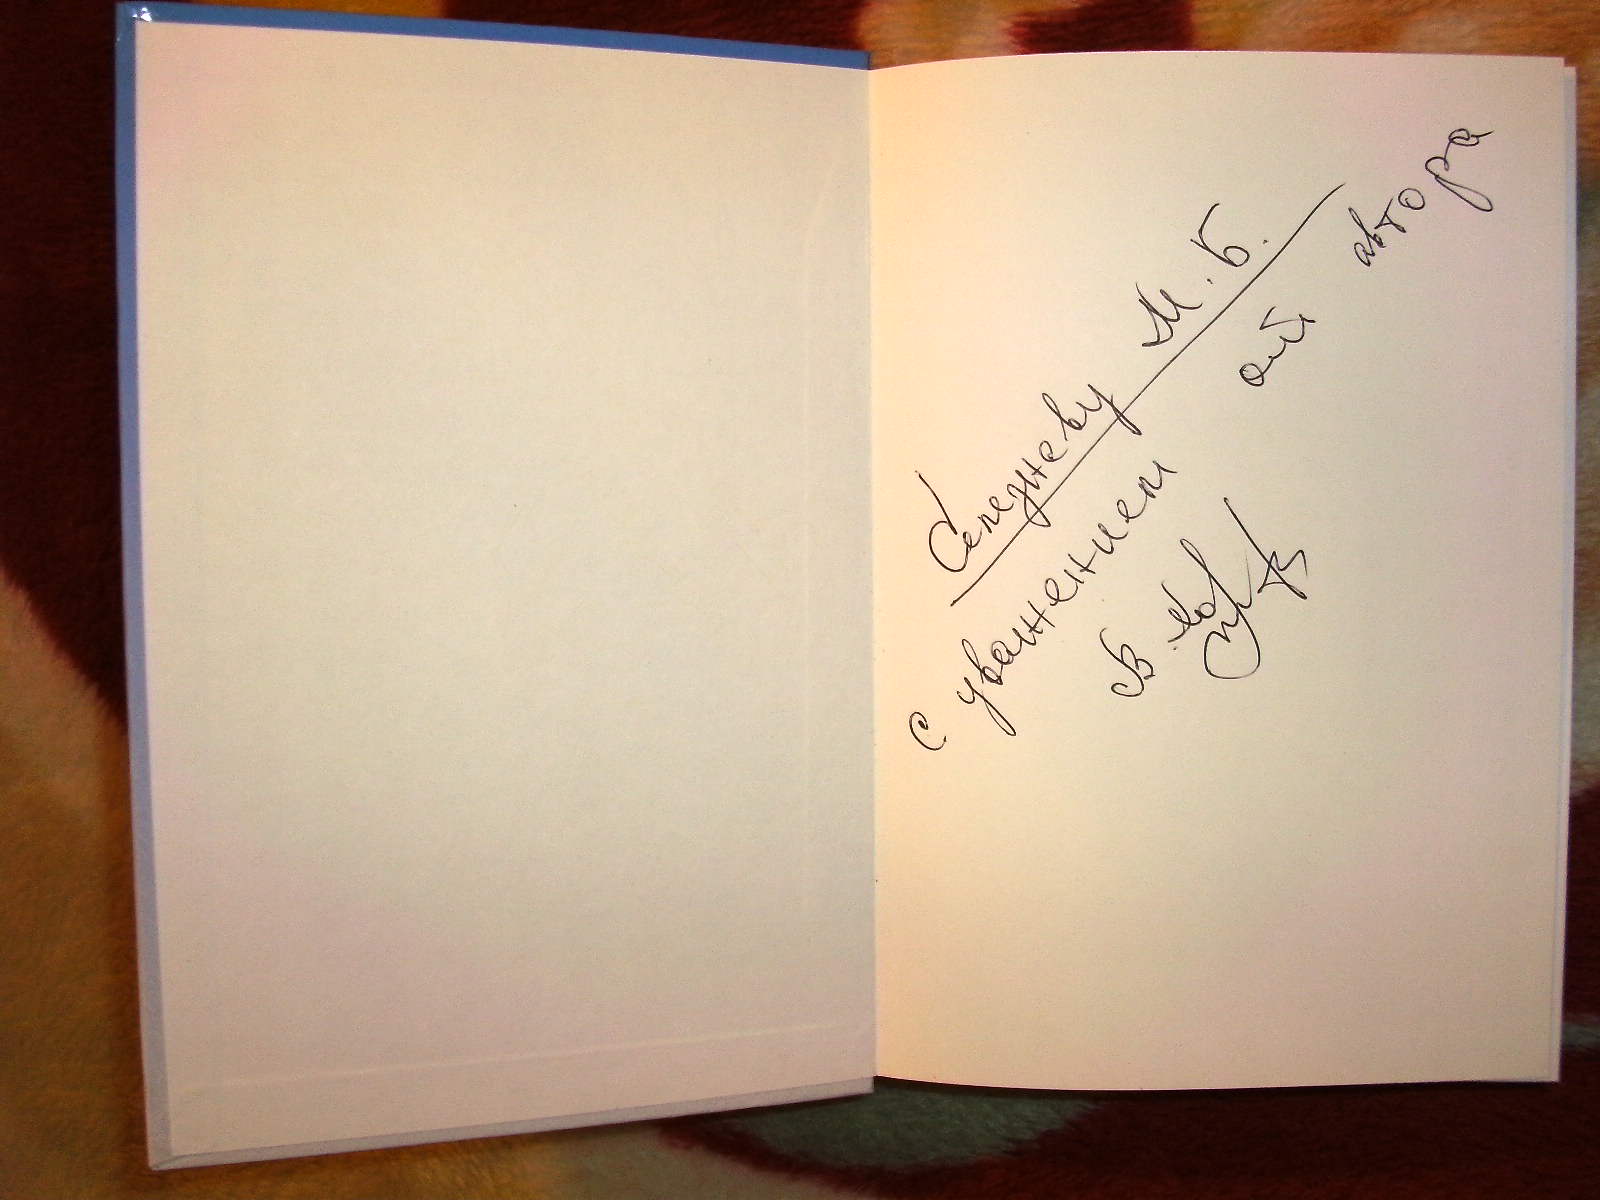 Селезневу М.Б.
с уважением от автора